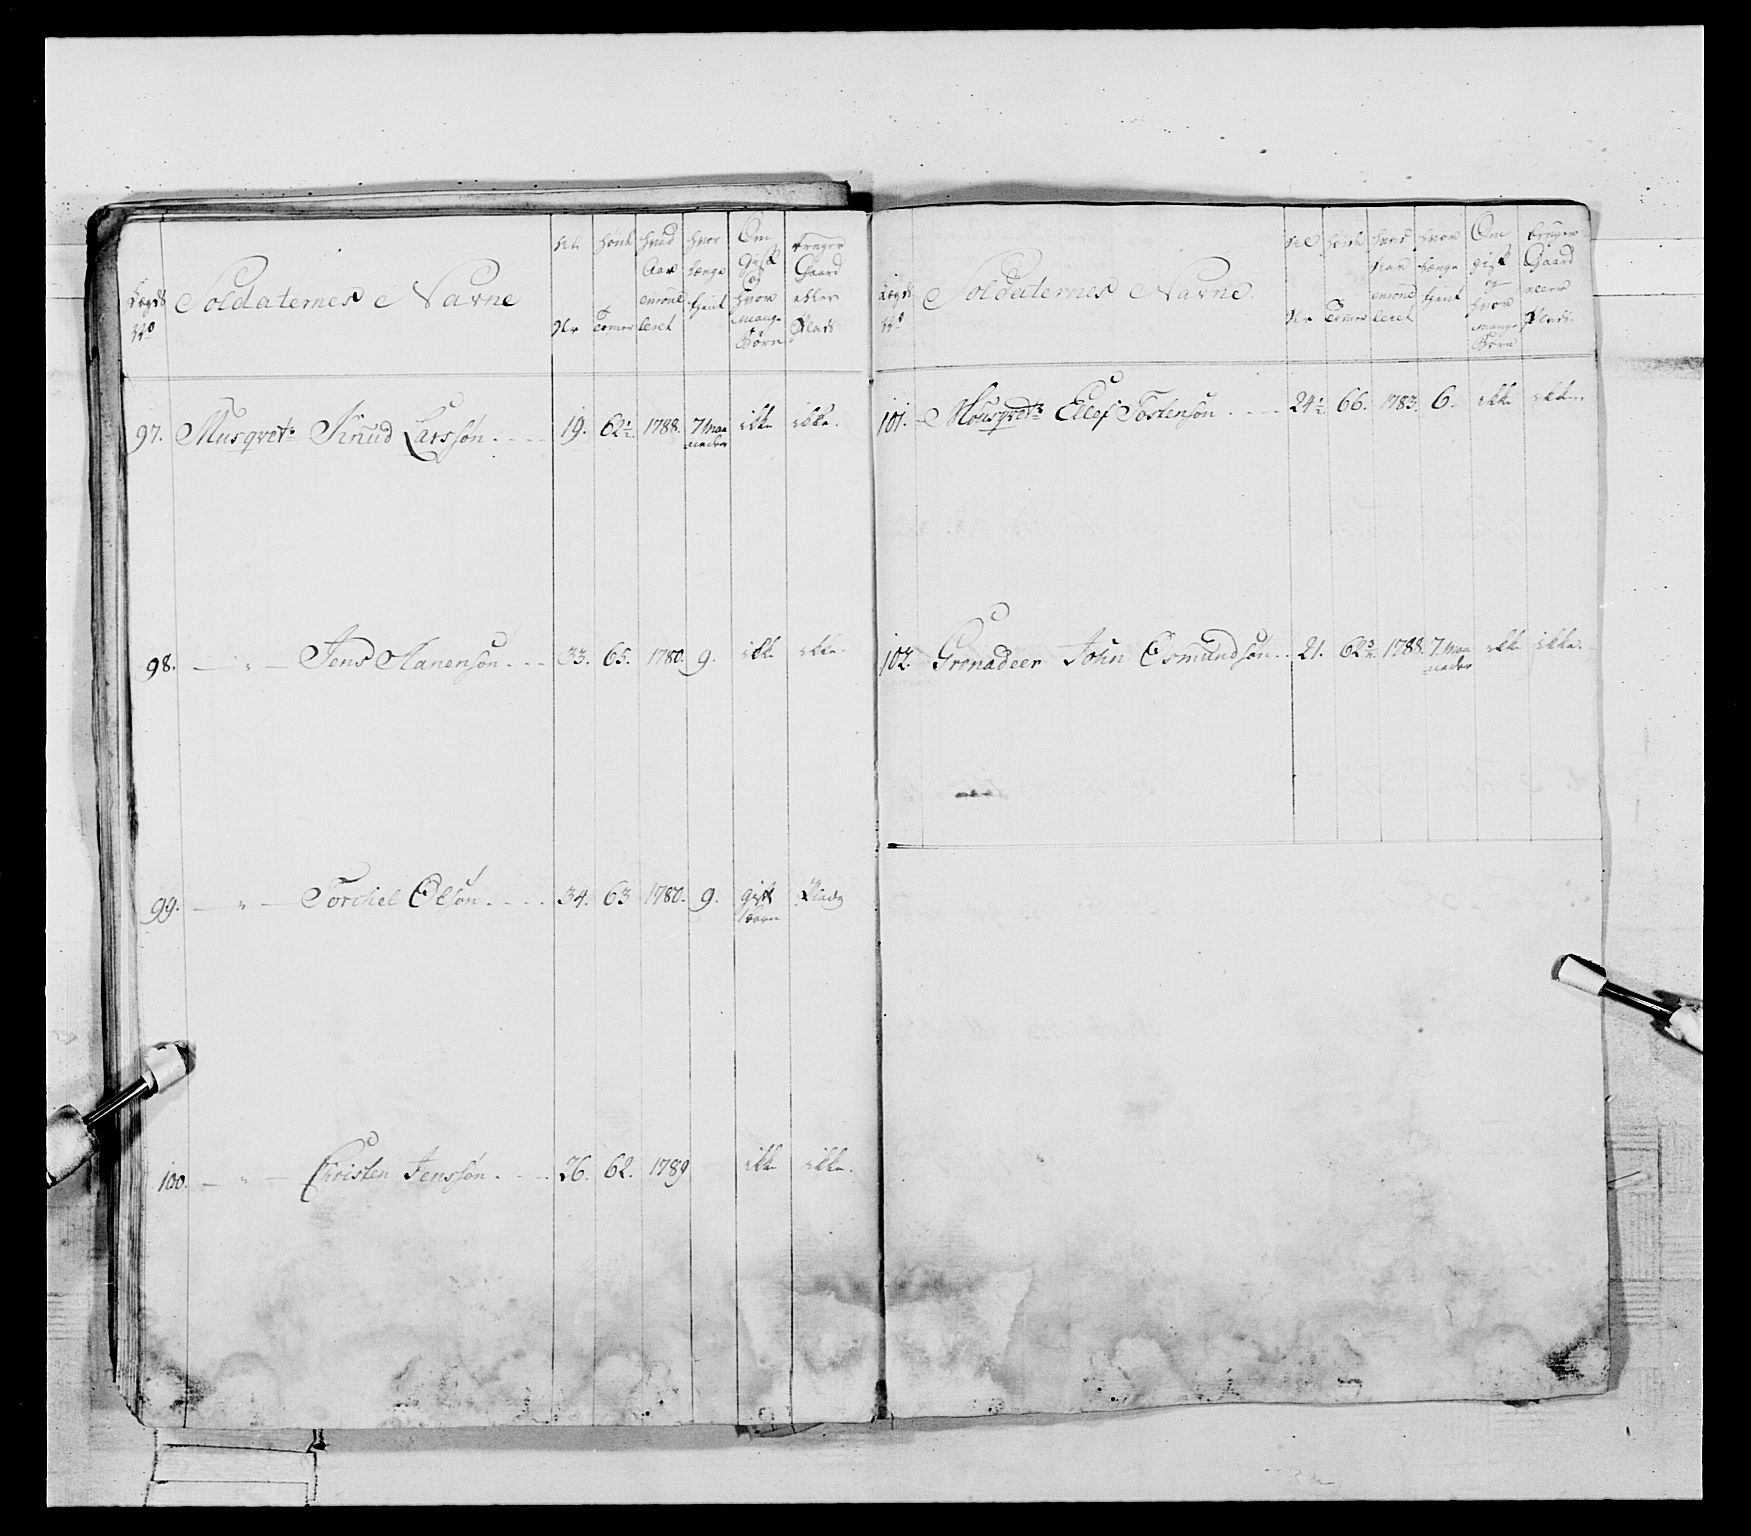 Lægds No
Soldaternes Navne
Hel Aar
høide Tomer
hvad Aar enroulleret
hvor længe tjent
Om gift og hvor mange Børn
bruger Gaard eller Plads
97. Musqvetr Knud Larssøn. 19. 62½. 1788. 7 maaneder ikke ikke.
98. — " — Jens Hanensøn. 33. 65. 1780. 9. ikke ikke.
99. — " — Torchel Olsøn. 34. 63 1780. 9. gift Plads
100. — " — Christen Jenssøn. 26. 62. 1789 ikke ikke.
Lægds No
Soldaternes Navne.
Aar
høide Tomer
hvad Aar enroulleret
hvor længe tjent
Om gift og hvor mange Børn
bruger Gaard eller Plads.
101. Mousqvetr Ellef Tostensøn. 24½. 66. 1783. 6. ikke ikke.
102. Grenadeer John Osmundsøn. 21. 62¾. 1788. 7. maaneder ikke ikke.